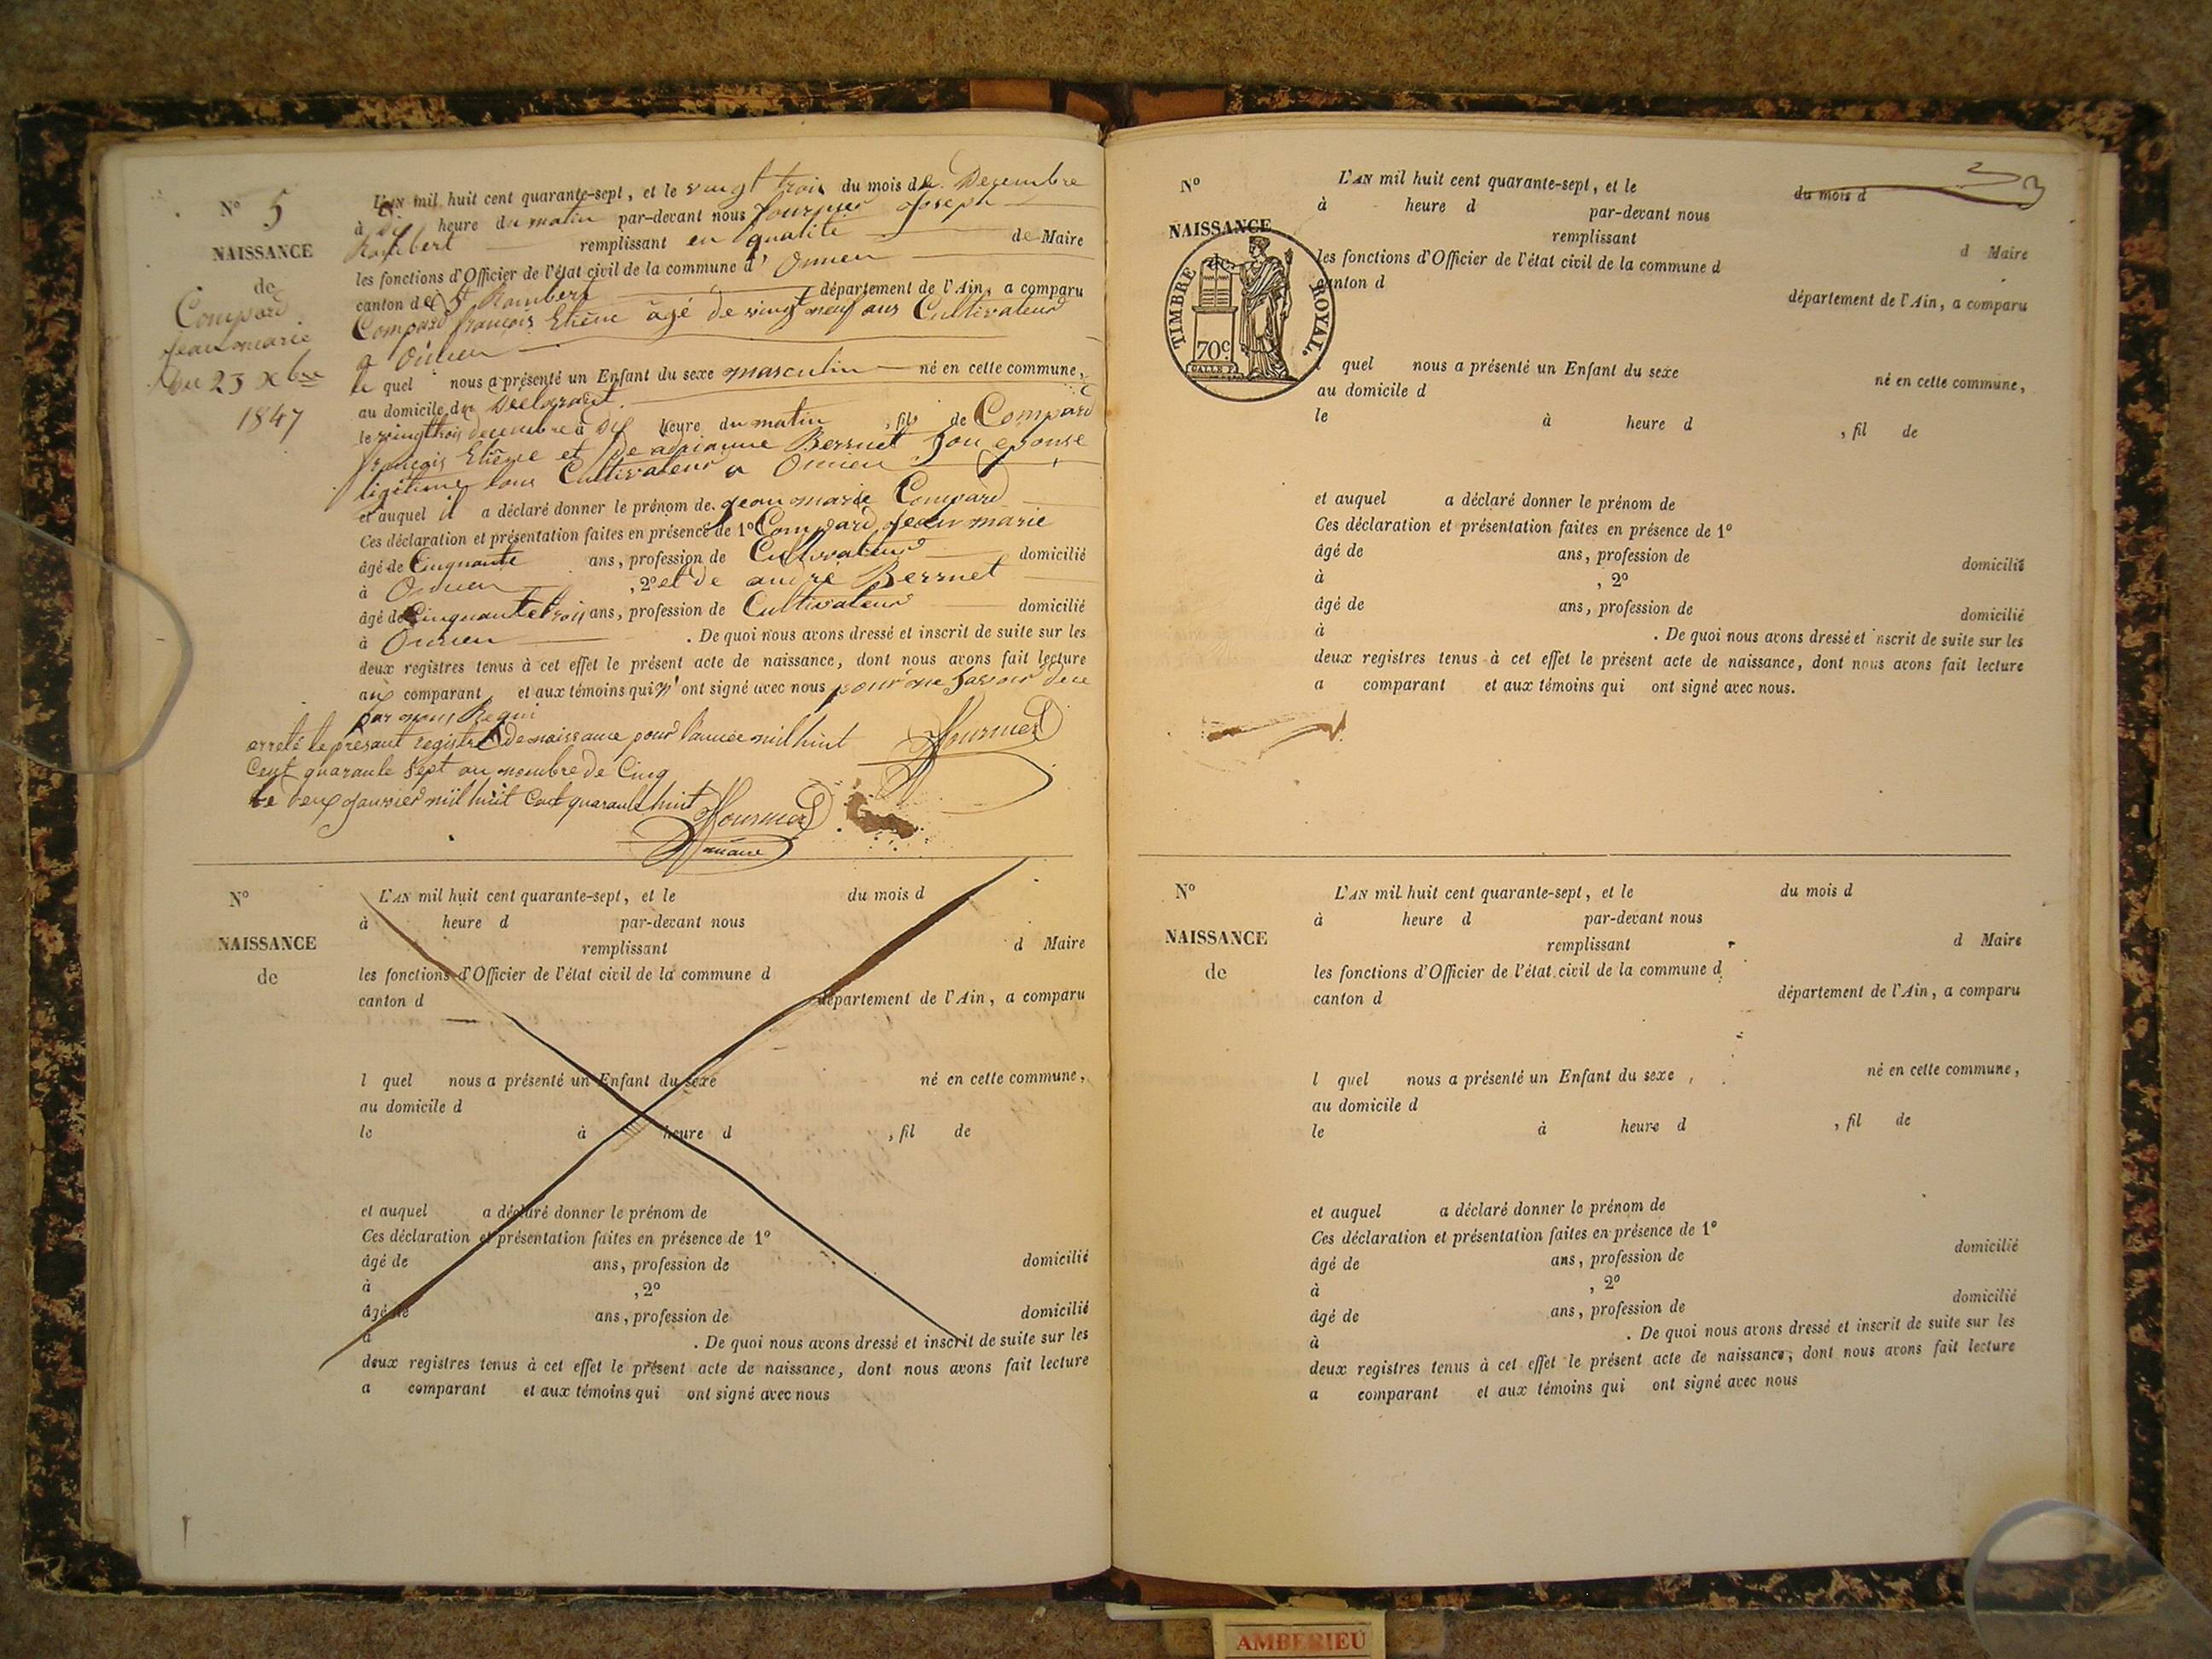 N° 5
NAISSANCE
de
Compard
Jean marie
Du 23 Xbre
1847
L'AN mil huit cent quarante-sept, et le vingt trois du mois de Decembre
à dix heure du matin par-devant nous fournier Joseph
Rambert remplissant en qualité de Maire
les fonctions d'Officier de l'état civil de la commune d' Oncieu
canton de St Rambert département de l'Ain, a comparu
Compard françois Etiène âgé de vingt neuf ans Cultivateur
a Oncieu
le quel nous a présenté un Enfant du sexe masculin né en cette commune,
au domicile du Declarant
le vingt trois decembre à dix heure du matin , fils de Compard
françois Etiène et de Bersnet son epouse
legitime tous Cultivateur a Oncieu
et auquel il a déclaré donner le prénom de jean marie Compard
Ces déclaration et présentation faites en présence de 1° Compard Jean marie
âgé de Cinquante ans, profession de Cultivateur domicilié
à Oncieu , 2° et de andré Bersnet
âgé de Cinquante trois ans, profession de Cultivateur domicilié
à Oncieu . De quoi nous avons dressé et inscrit de suite sur les
deux registres tenus à cet effet le présent acte de naissance, dont nous avons fait lecture
aux comparant et aux témoins qui n'ont signé avec nous pour ne savoir de ce
par nous Requi
arreté le présant registre de naissance pour l'année mil huit
Cent quarante sept au nombre de Cinq
le deux Janvier mil huit Cent quarante huit
Fournier
Fournier
maire
N°
NAISSANCE
de
L'AN mil huit cent quarante-sept, et le du mois d
à heure d par-devant nous
remplissant d Maire
les fonctions d'Officier de l'état civil de la commune d
canton d département de l'Ain, a comparu
l quel nous a présenté un Enfant du sexe né en cette commune,
au domicile d
le à heure d , fil de
et auquel a déclaré donner le prénom de
Ces déclaration et présentation faites en présence de 1°
âgé de ans, profession de domicilié
à , 2°
âgé de ans, profession de domicilié
à . De quoi nous avons dressé et inscrit de suite sur les
deux registres tenus à cet effet le présent acte de naissance, dont nous avons fait lecture
a comparant et aux témoins qui ont signé avec nous
N°
NAISSANCE
de
TIMBRE ROYAL.
70c.
L'AN mil huit cent quarante-sept, et le du mois d
à heure d par-devant nous
remplissant d Maire
les fonctions d'Officier de l'état civil de la commune d
canton d département de l'Ain, a comparu
quel nous a présenté un Enfant du sexe né en cette commune,
au domicile d
le à heure d , fil de
et auquel a déclaré donner le prénom de
Ces déclaration et présentation faites en présence de 1°
âgé de ans, profession de domicilié
à , 2°
âgé de ans, profession de domicilié
à . De quoi nous avons dressé et inscrit de suite sur les
deux registres tenus à cet effet le présent acte de naissance, dont nous avons fait lecture
a comparant et aux témoins qui ont signé avec nous.
N°
NAISSANCE
de
L'AN mil huit cent quarante-sept, et le du mois d
à heure d par-devant nous
remplissant d Maire
les fonctions d'Officier de l'état civil de la commune d
canton d département de l'Ain, a comparu
l quel nous a présenté un Enfant du sexe né en cette commune,
au domicile d
le à heure d , fil de
et auquel a déclaré donner le prénom de
Ces déclaration et présentation faites en présence de 1°
âgé de ans, profession de domicilié
à , 2°
âgé de ans, profession de domicilié
à . De quoi nous avons dressé et inscrit de suite sur les
deux registres tenus à cet effet le présent acte de naissance, dont nous avons fait lecture
a comparant et aux témoins qui ont signé avec nous
AMBERIEU